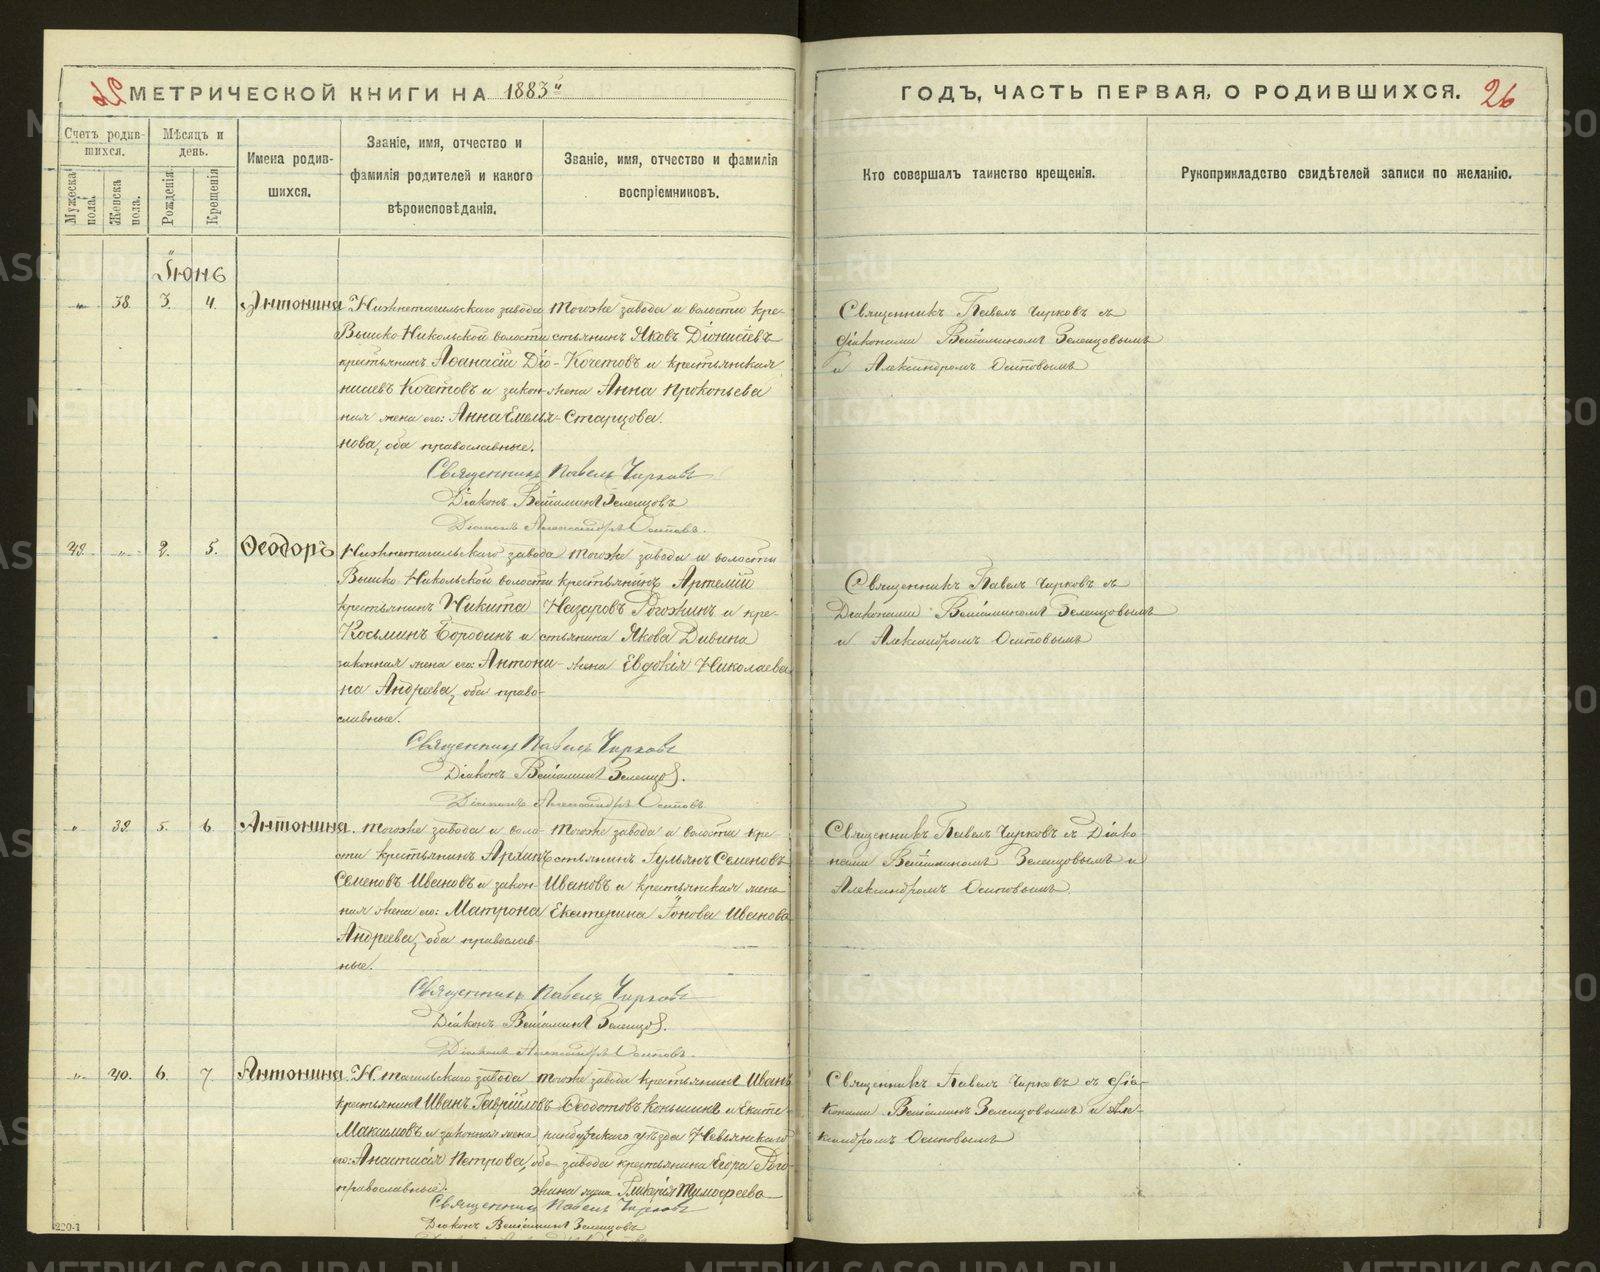 26
МЕТРИЧЕСКОЙ КНИГИ НА 1883й
ГОДЪ, ЧАСТЬ ПЕРВАЯ, О РОДИВШИХСЯ.
26
Счетъ родив-
шихся.
Мужеска
пола.
Женска
пола.
Мѣсяцъ и
день.
Рожденія.
Крещенія
Имена родив-
шихся.
Званіе, имя, отчество и
фамилія родителей и какого
вѣроисповѣданія.
Званіе, имя, отчество и фамилія
воспріемниковъ.
Кто совершалъ таинство крещенія.
Рукоприкладство свидѣтелей записи по желанію.
Іюнь
" 38. 3. 4. Антонина
Нижнетагильскаго завода
Выйско Никольской волости
крестьянинъ Аѳанасій Діо-
нисіевъ Кочетовъ и закон-
ная жена его: Анна Емелья-
нова, оба православные.
тогоже завода и волости кре-
стьянинъ Яковъ Діонисіевъ
Кочетовъ и крестьянская
жена Анна Прокопьева
Старцова.
Священникъ Павелъ Чирковъ съ
діаконами Веніаминомъ Зеленцовымъ
и Александромъ Осиповымъ
Священникъ Павелъ Чирковъ
Діаконъ Веніаминъ Зеленцовъ
Діаконъ Александръ Осиповъ.
42. " 2. 5. Ѳеодоръ
Нижнетагильскаго завода
Выйско Никольской волости
крестьянинъ Никита
Косьминъ Бородинъ и
законная жена его: Антони-
на Андреева, оба право-
славные.
тогоже завода и волости
крестьянинъ Артемій
Назаровъ Рогожинъ и кре-
стьянина Якова Дивина
жена Евдокія Николаева
Священникъ Павелъ Чирковъ съ
Діаконами Веніаминомъ Зеленцовымъ
и Александромъ Осиповымъ
Священникъ Павелъ Чирковъ
Діаконъ Веніаминъ Зеленцовъ.
Діаконъ Александръ Осиповъ
" 39. 5. 6. Антонина.
тогоже завода и воло-
сти крестьянинъ Архипъ
Семеновъ Ивановъ и закон-
ная жена его: Матрона
Андреева, оба православ-
ные.
тогоже завода и волости кре-
стьянинъ Іульянъ Семеновъ
Ивановъ и крестьянская жена
Екатерина Іонова Иванова
Священникъ Павелъ Чирковъ съ Діако-
нами Веніаминомъ Зеленцовымъ и
Александромъ Осиповымъ.
Священникъ Павелъ Чирковъ
Діаконъ Веніаминъ Зеленцовъ.
Діаконъ Александръ Осиповъ.
" 40. 6. 7. Антонина.
Н. тагильскаго завода
крестьянинъ Иванъ Гавріиловъ
Максимовъ и законная жена
его: Анастасія Петрова, оба
православные.
тогоже завода крестьянинъ Иванъ
Ѳеодотовъ Коньшинъ и Екате-
ринбургскаго уѣзда Невьянскаго
завода крестьянина Егора Рого-
жина жена Гликерія Тимоѳеева
Священникъ Павелъ Чирковъ съ діа-
конами Веніаминъ Зеленцовымъ и Але-
ксандромъ Осиповымъ
Священникъ Павелъ Чирковъ
Діаконъ Веніаминъ Зеленцовъ
220-1
METRIKI.GASO-URAL.RU